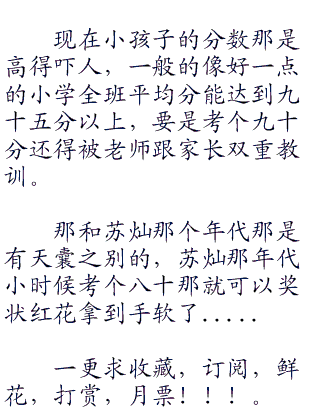 现在小孩子的分数那是
高得吓人，一般的像好一点
的小学全班平均分能达到九
十五分以上，要是考个九十
分还得被老师跟家长双重教
训。
那和苏灿那个年代那是
有天囊之别的，苏灿那年代
小时候考个八十那就可以奖
状红花拿到手软了.....
一更求收藏，订阅，鲜
花，打赏，月票！！！。